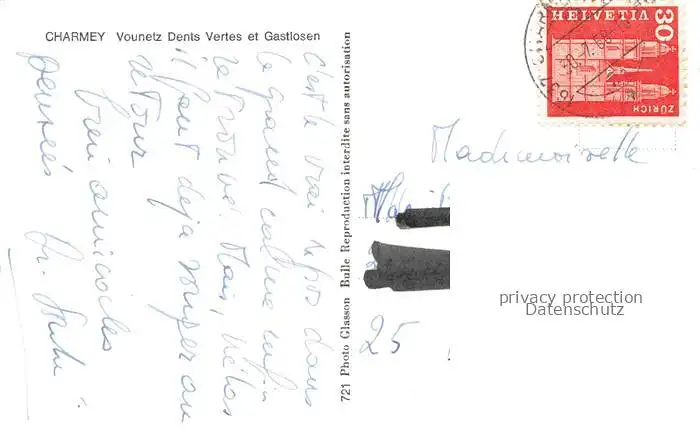 CHARMEY Vounetz Dents Vertes et Gastlosen
c'est le vrai repos dans
le grand calme enfin
retrouvé. Mais, hélas
il faut déjà songer au
retour
bien amicales
pensées
721 Photo Glasson Bulle Reproduction interdite sans autorisation
HELVETIA
30
ZÜRICH
Mademoiselle
25
privacy protection
Datenschutz